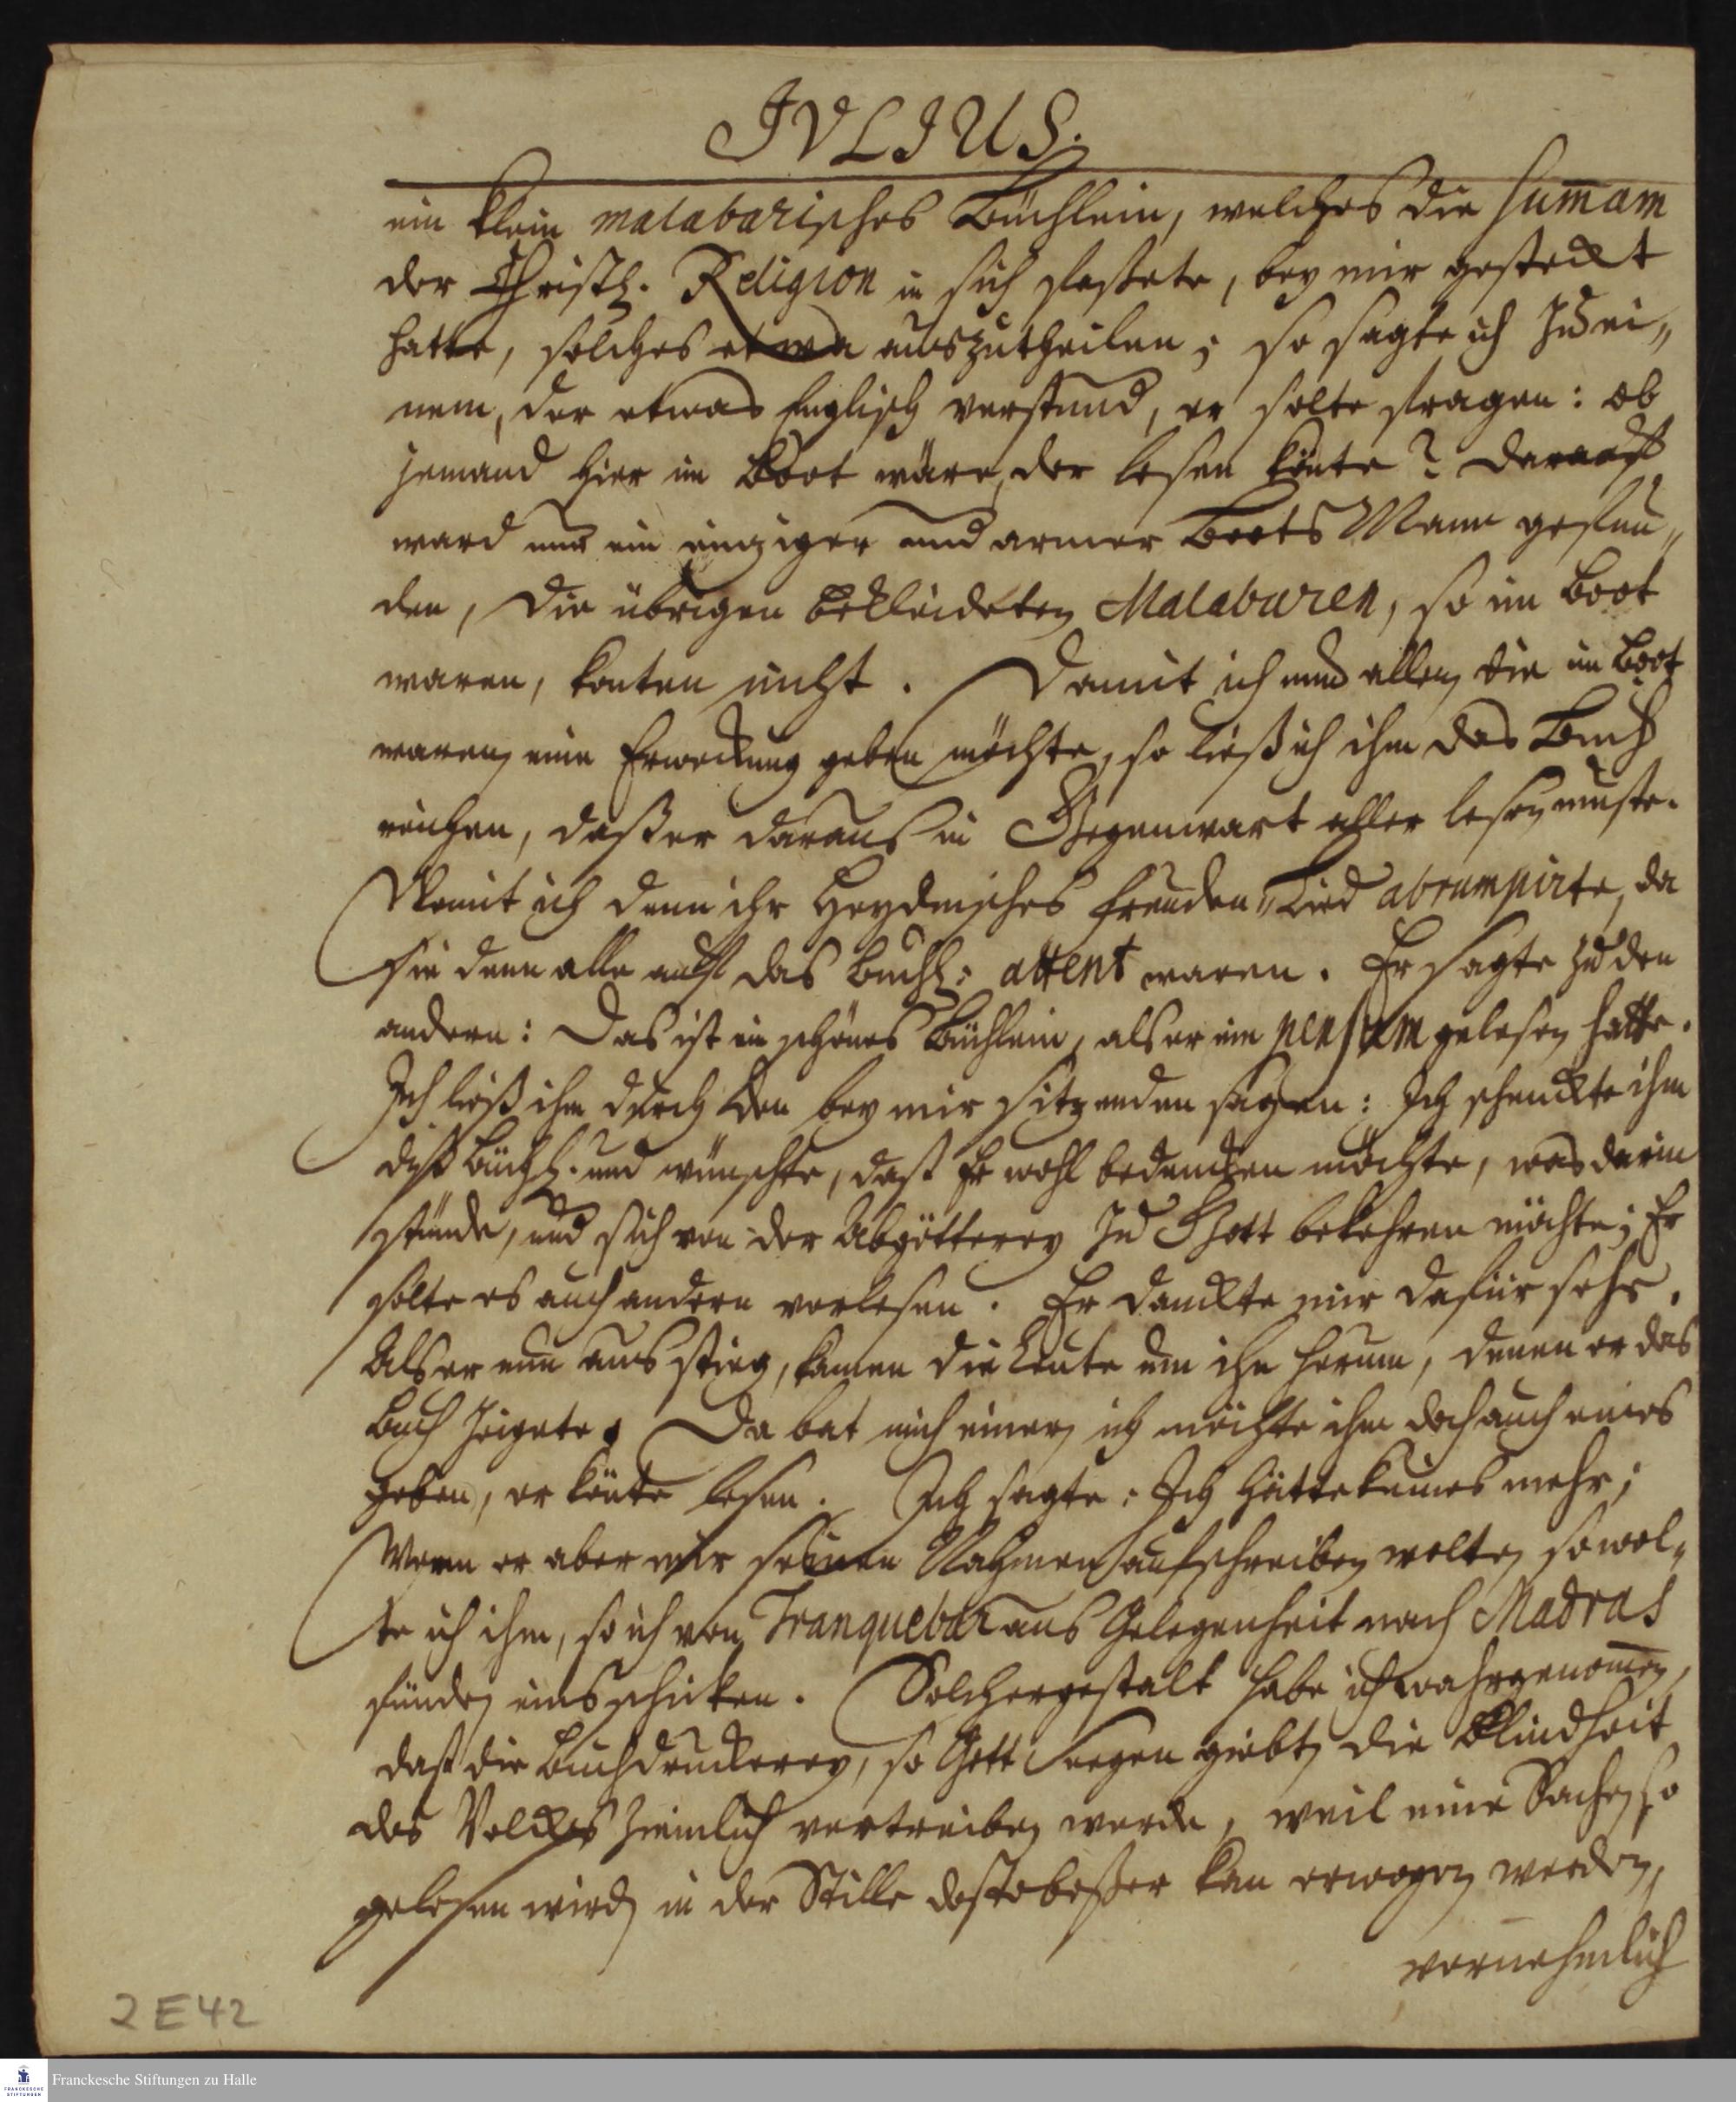 JVLIUS.
ein klein malabarisches Büchlein, welches die sum̄am
der Christl. Religion in sich fassete, bey mir gesteckt
hatte, solches etwa auszutheilen; so sagte ich zu ei„
nem, der etwas Englisch verstund, er solte fragen: ob
jemand hier im Boot wäre, der lesen könte? darauff
ward nur ein einziger und armer Boots Mann gefun„
den, die übrigen bekleideten Malabaren, so im Boot
waren, konten nicht. Damit ich nun allen die im Boot
waren, eine Erweckung geben möchte, so ließ ich ihm das Buch
reichen, daß er daraus in Gegenwart aller lesen muste.
Womit ich denn ihr Heydnisches Freuden„Lied abrumpirte, da
sie denn alle auff das Büchl: attent waren. Er sagte zu den
andern: Das ist ein schönes Büchlein, als er ein pensum gelesen hatte.
Ich ließ ihm durch den bey mir sitzenden sagen: Ich schenckte ihm
diß Büchl. und wünschte, daß Er wohl bedencken möchte, was darin
stünde, und sich von der Abgötterey zu Gott bekehren möchte; Er
solte es auch andern vorlesen. Er danckte mir dafür sehr.
Als er nun aus stieg, kamen die Leute um ihn herum, denen er das
Buch zeigete. Da bat mich einer, ich möchte ihm doch auch eines
geben, er könte lesen. Ich sagte: Ich hätte keines mehr;
Wenn er aber mir seinen Nahmen aufschreiben wolte, so wol„
te ich ihm, so ich von Tranquebar aus Gelegenheit nach Madras
fünde, eins schicken. Solchergestalt habe ich wahrgenom̄en,
daß die Buchdruckerey, so Gott Seegen giebt, die Blindheit
des Volckes ziemlich vertreiben werde, weil eine Sache, so
gelesen wird, in der Stille desto beßer kan erwogen werden,
vornehmlich
2 E 42
Franckesche Stiftungen zu Halle
FRANCKESCHE
STIFTUNGEN